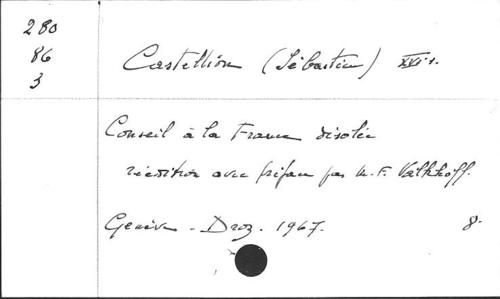 280
86
3
Castellion (Sébastien) XVI s.
Conseil à la France désolée
réédition avec préface par M. F. Valkhoff.
Genève - Droz. 1967. 8°